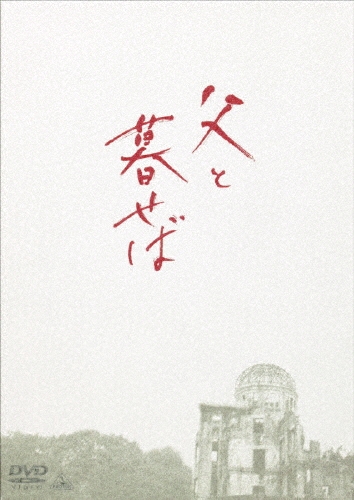 父と
暮せば
DVD
VIDEO